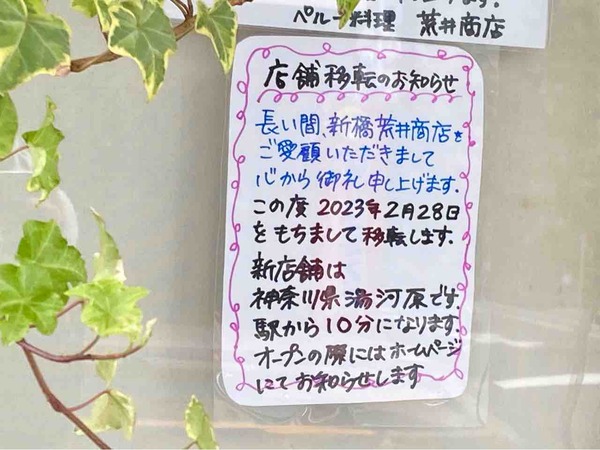 ペルー料理 荒井商店
店舗移転のお知らせ
長い間、新橋荒井商店を
ご愛顧いただきまして
心から御礼申し上げます.
この度 2023年2月28日
をもちまして移転します.
新店舗は
神奈川県湯河原です.
駅から10分になります.
オープンの際にはホームページ
にてお知らせします